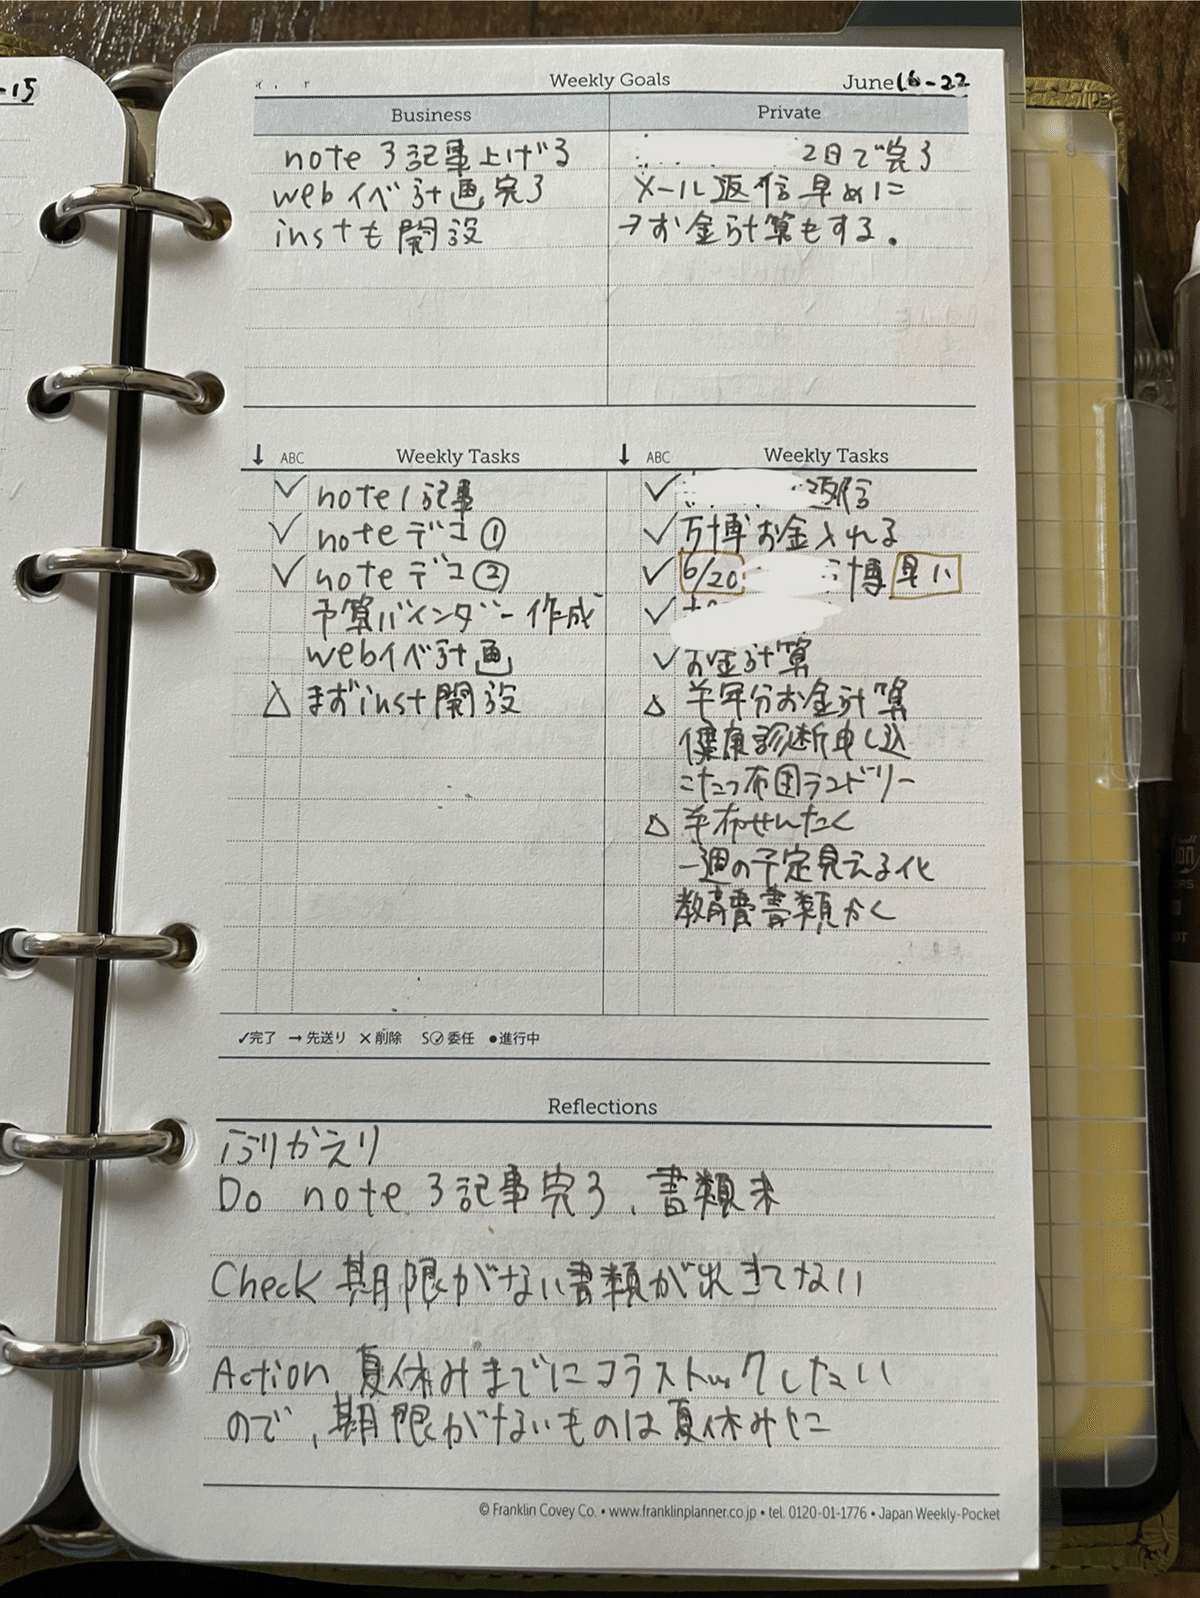 -15
Weekly Goals
June 16-22
Business
Private
note 3記事上げる
webイベ計画完了
instも開設
2日で完了
メール返信早めに
→お金計算もする。
↓ ABC Weekly Tasks
✓ note1記事
✓ noteデコ①
✓ noteデコ②
予算バインダー作成
webイベ計画
△ まずinst開設
↓ ABC Weekly Tasks
✓ 返信
✓ 万博お金入れる
✓ 6/20 万博 早い
✓
✓ お金計算
△ 半年分お金計算
健康診断申し込
こたつ布団ランドリー
△ 羊布せんたく
一週の予定見える化
教育費書類かく
✓完了 →先送り ×削除 S✓委任 ●進行中
Reflections
ふりかえり
Do note 3記事完了、書類未
Check 期限がない書類が出きてない
Action 夏休みまでにコラストックしたい
ので、期限がないものは夏休みに
© Franklin Covey Co. • www.franklinplanner.co.jp • tel. 0120-01-1776 • Japan Weekly-Pocket